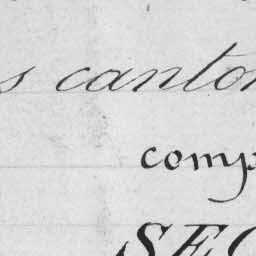 s canton
comp
SEC